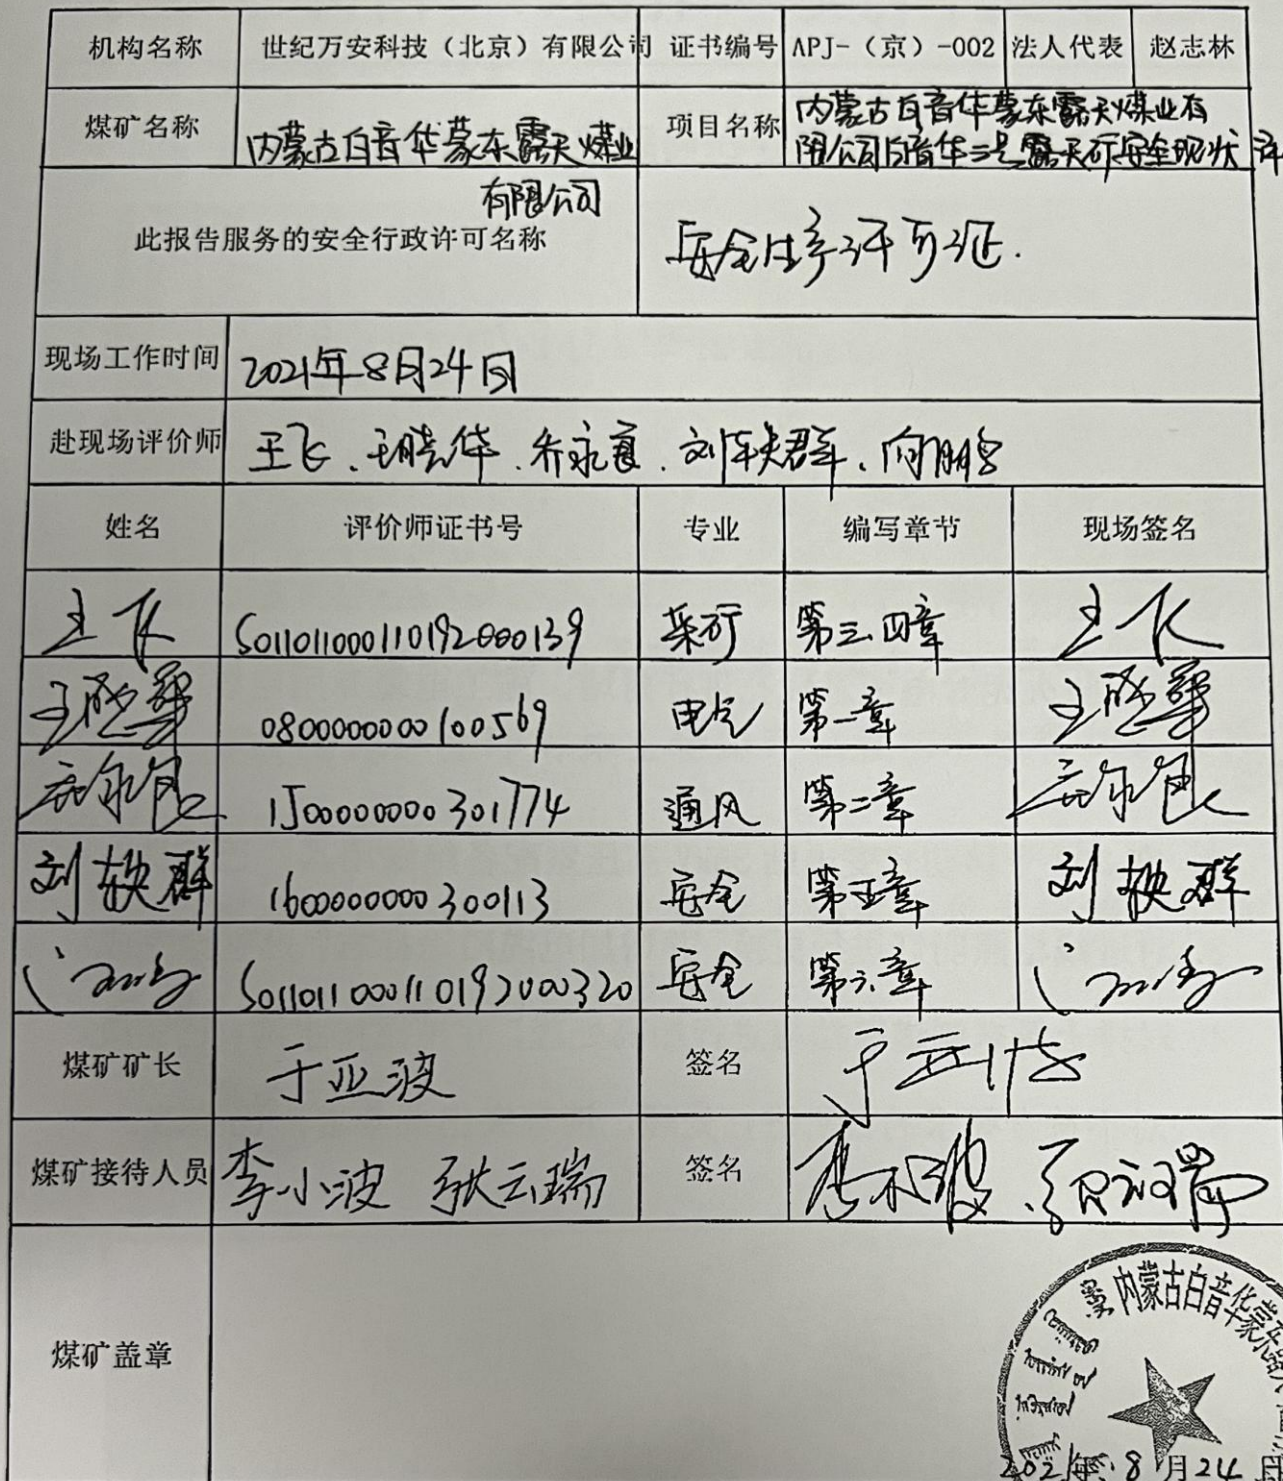 机构名称 世纪万安科技（北京）有限公司 证书编号 APJ-（京）-002 法人代表 赵志林
煤矿名称 内蒙古白音华蒙东露天煤业有限公司 项目名称 内蒙古白音华蒙东露天煤业有
限公司白音华三号露天矿安全现状评
此报告服务的安全行政许可名称 安全生产许可证.
现场工作时间 2021年8月24日
赴现场评价师 王飞、王晓华、乔永良、刘轶群、向鹏
姓名 评价师证书号 专业 编写章节 现场签名
王飞 S011011000110192000139 采矿 第三、四章 王飞
王晓华 0800000000100569 电气 第一章 王晓华
乔永良 1500000000301774 通风 第二章 乔永良
刘轶群 1600000000300113 安全 第五章 刘轶群
S011011000110192000320 安全 第六章
煤矿矿长 于亚波 签名 于亚波
煤矿接待人员 李小波 张云瑞 签名 李小波 张云瑞
煤矿盖章
内蒙古白音华蒙东露天
2021年8月24日